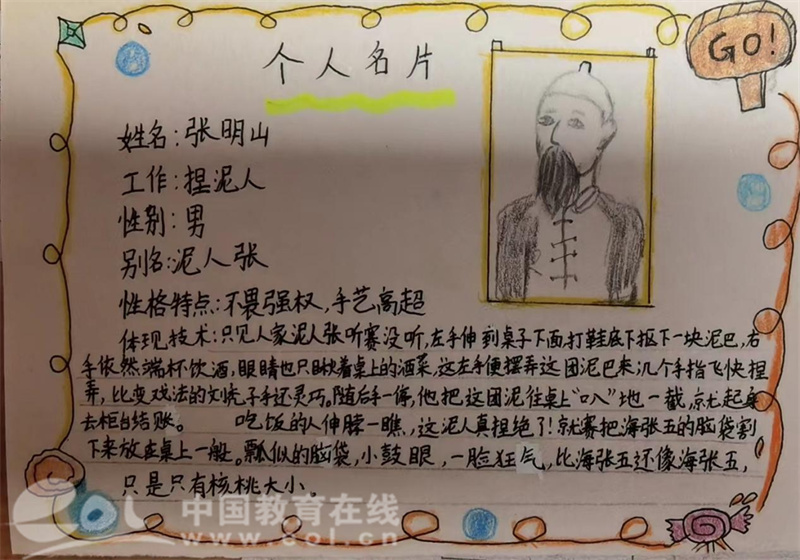 个人名片
GO!
姓名:张明山
工作:捏泥人
性别:男
别名:泥人张
性格特点:不畏强权,手艺高超
体现技术:只见人家泥人张听赛没听,左手伸到桌子下面,打鞋底下抠下一块泥巴,右
手依然端杯饮酒,眼睛也只瞅着桌上的酒菜,这左手便摆弄这团泥巴来,几个手指飞快捏
弄,比变戏法的刘秃子手还灵巧。随后手一停,他把这团泥往桌上“叭”地一截,就起身
去柜台结账。 吃饭的人伸脖一瞧,这泥人真捏绝了!就赛把海张五的脑袋割
下来放在桌上一般。瓢似的脑袋,小鼓眼,一脸狂气,比海张五还像海张五,
只是只有核桃大小。
eol 中国教育在线
www.eol.cn